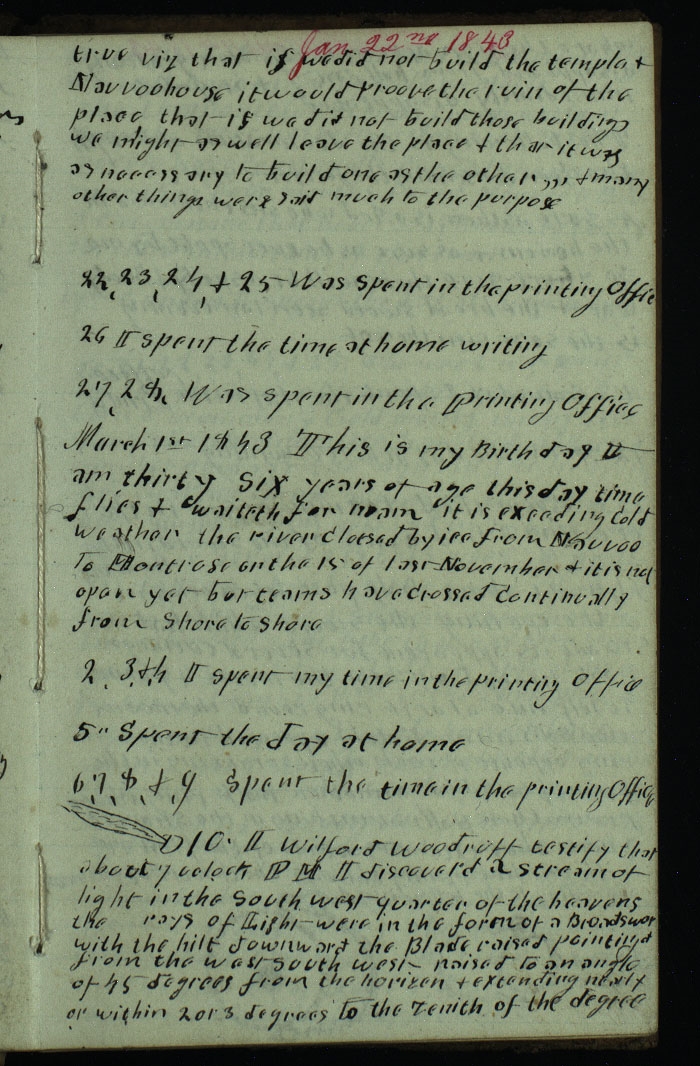 Jan 22nd 1843
true viz that if we did not build the temple &
Nauvoo house it would proove the ruin of the
place that if we did not build those buildings
we might as well leave the place & that it was
as necessary to build one as the other & many
other things were said much to the purpose
22, 23, 24, & 25 Was spent in the printing Office
26 I spent the time at home writing
27, 28, Was spent in the Printing Office
March 1st 1843 This is my Birth day I
am thirty six years of age this day time
flies & waiteth for no man it is exceding cold
weather the river closed by ice from Nauvoo
to Montrose on the 15 of last November & it is not
open yet but teams have crossed continually
from Shore to Shore
2, 3, 4th I spent my time in the printing Office
5" Spent the day at home
6, 7, 8, & 9 Spent the time in the printing Office
10. I Wilford Woodruff testify that
about 7 oclock PM I discoverd a stream of
light in the South west quarter of the heavens
the rays of Light were in the form of a Broadswor
with the hilt downward the Blade raised pointing
from the west South west raised to an angle
of 45 degrees from the horizen & extending nearly
or within 2 or 3 degrees to the zenith of the degree